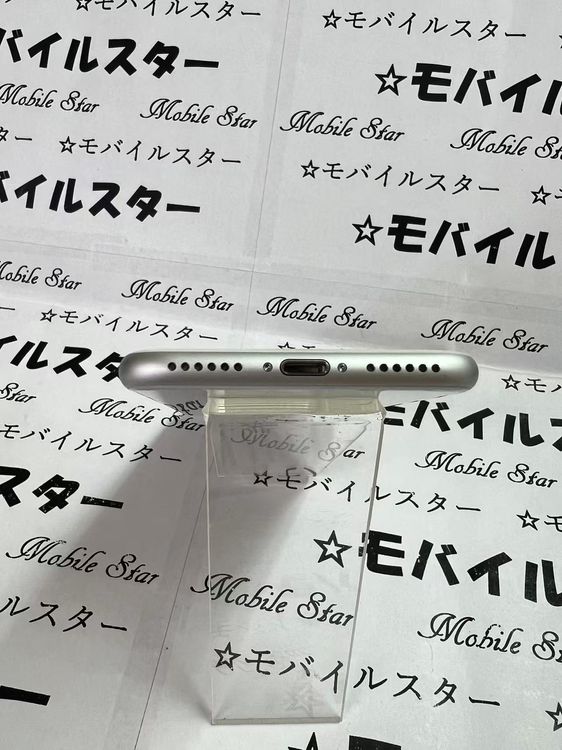 ☆モバイルスター ☆モバイルスター
バイルスター ☆モバイル
Mobile Star Mobile Star Mobile Star Mobile Star
ター ☆モバイルスター ☆モバイルスター ☆モ
バイルスター ☆モバイル
Mobile Star Mobile Star Mobile Star Mobile Star
☆モバイルスター
イルスター ☆モ
Mobile Star Mobile Star
Mobile Star Mobile Star
☆モバイルスター ☆モバイルスター
スター ☆モバイル
Mobile Star Mobile Star Mobile S
ルスター ☆モバイルスター